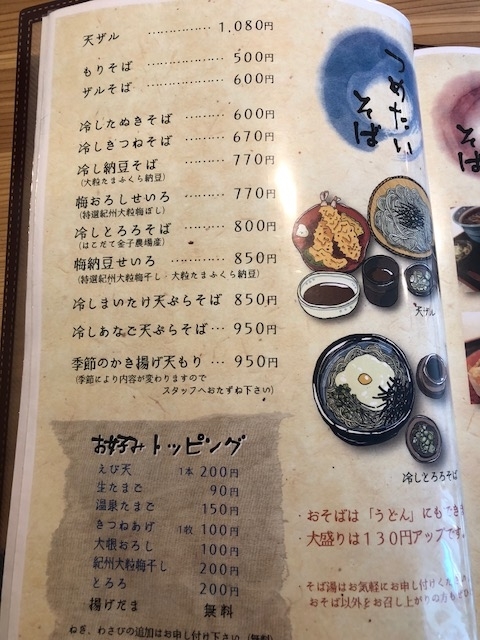 天ザル ………… 1,080円
もりそば ………… 500円
ザルそば ………… 600円
冷したぬきそば ……… 600円
冷しきつねそば ……… 670円
冷し納豆そば ……… 770円
(大粒たまふくら納豆)
梅おろしせいろ ……… 770円
(特選紀州大粒梅ぼし)
冷しとろろそば ……… 800円
(はこだて金子農場産)
梅納豆せいろ ……… 850円
(特選紀州大粒梅干し・大粒たまふくら納豆)
冷しまいたけ天ぷらそば 850円
冷しあなご天ぷらそば… 950円
季節のかき揚げ天もり … 950円
(季節により内容が変わりますので
スタッフへおたずね下さい)
お好みトッピング
えび天 1本 200円
生たまご 90円
温泉たまご 150円
きつねあげ 1枚 100円
大根おろし 100円
紀州大粒梅干し 200円
とろろ 200円
揚げだま 無料
ねぎ、わさびの追加はお申し付け下さい(無料)
つめたい
そば
天ザル
冷しとろろそば
・おそばは「うどん」にもでき
・大盛りは130円アップです
・そば湯はお気軽にお申し付けくださ
おそば以外をお召し上がりの方も
そば